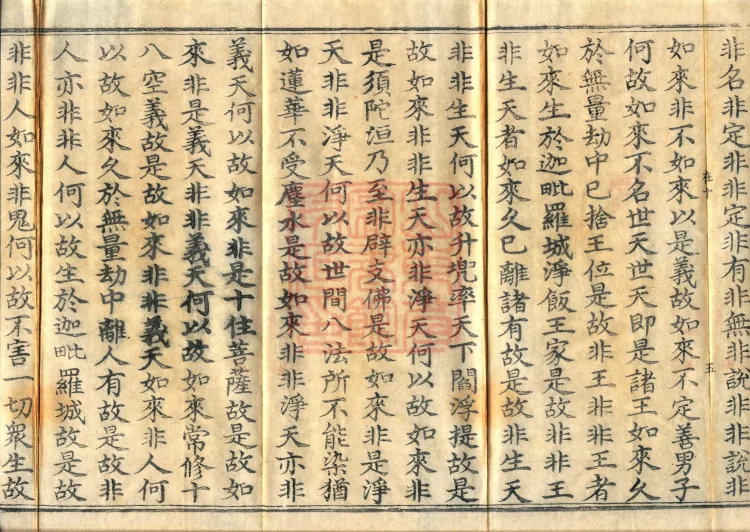 非名非定非非定非有非無非說非非說非
如來非不如來以是義故如來不定善男子
何故如來不名世天世天即是諸王如來久
於無量劫中已捨王位是故非王非非王者
如來生於迦毗羅城淨飯王家是故非非王
非生天者如來久已離諸有故是故非生天
非非生天何以故升兜率天下閻浮提故是
故如來非非生天亦非淨天何以故如來非
是須陀洹乃至非辟支佛是故如來非是淨
天非非淨天何以故世間八法所不能染猶
如蓮華不受塵水是故如來非非淨天亦非
義天何以故如來非是十住菩薩故是故如
來非是義天非非義天何以故如來常修十
八空義故是故如來非非義天如來非人何
以故如來久於無量劫中離人有故是故非
人亦非非人何以故生於迦毗羅城故是故
非非人如來非鬼何以故不害一切衆生故
五